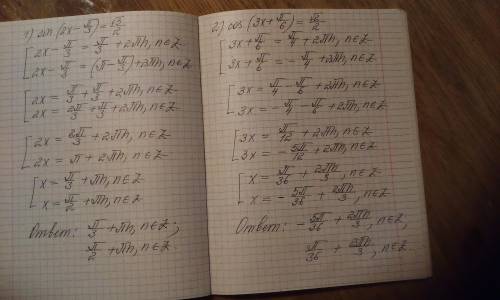 1) sin (2x - π/3) = √3/2
[ 2x - π/3 = π/3 + 2πn, n∈Z
[ 2x - π/3 = (π - π/3) + 2πn, n∈Z
[ 2x = π/3 + π/3 + 2πn, n∈Z
[ 2x = 2π/3 + π/3 + 2πn, n∈Z
[ 2x = 2π/3 + 2πn, n∈Z
[ 2x = π + 2πn, n∈Z
[ x = π/3 + πn, n∈Z
[ x = π/2 + πn, n∈Z
Ответ: π/3 + πn, n∈Z;
π/2 + πn, n∈Z
2) cos (3x + π/6) = √2/2
[ 3x + π/6 = π/4 + 2πn, n∈Z
[ 3x + π/6 = - π/4 + 2πn, n∈Z
[ 3x = π/4 - π/6 + 2πn, n∈Z
[ 3x = - π/4 - π/6 + 2πn, n∈Z
[ 3x = π/12 + 2πn, n∈Z
[ 3x = - 5π/12 + 2πn, n∈Z
[ x = π/36 + 2πn/3, n∈Z
[ x = - 5π/36 + 2πn/3, n∈Z
Ответ: - 5π/36 + 2πn/3, n∈Z,
π/36 + 2πn/3, n∈Z